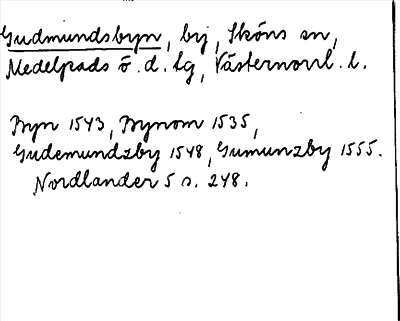 Gudmundsbyn, by, Sköns sn,
Medelpads ö. d. tg, Västernorrl. l.
Byn 1543, Bynom 1535,
Gudemundzby 1548, Gumunzby 1555.
Nordlander 5 s. 248.